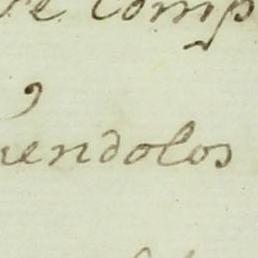 de comp
iendolos